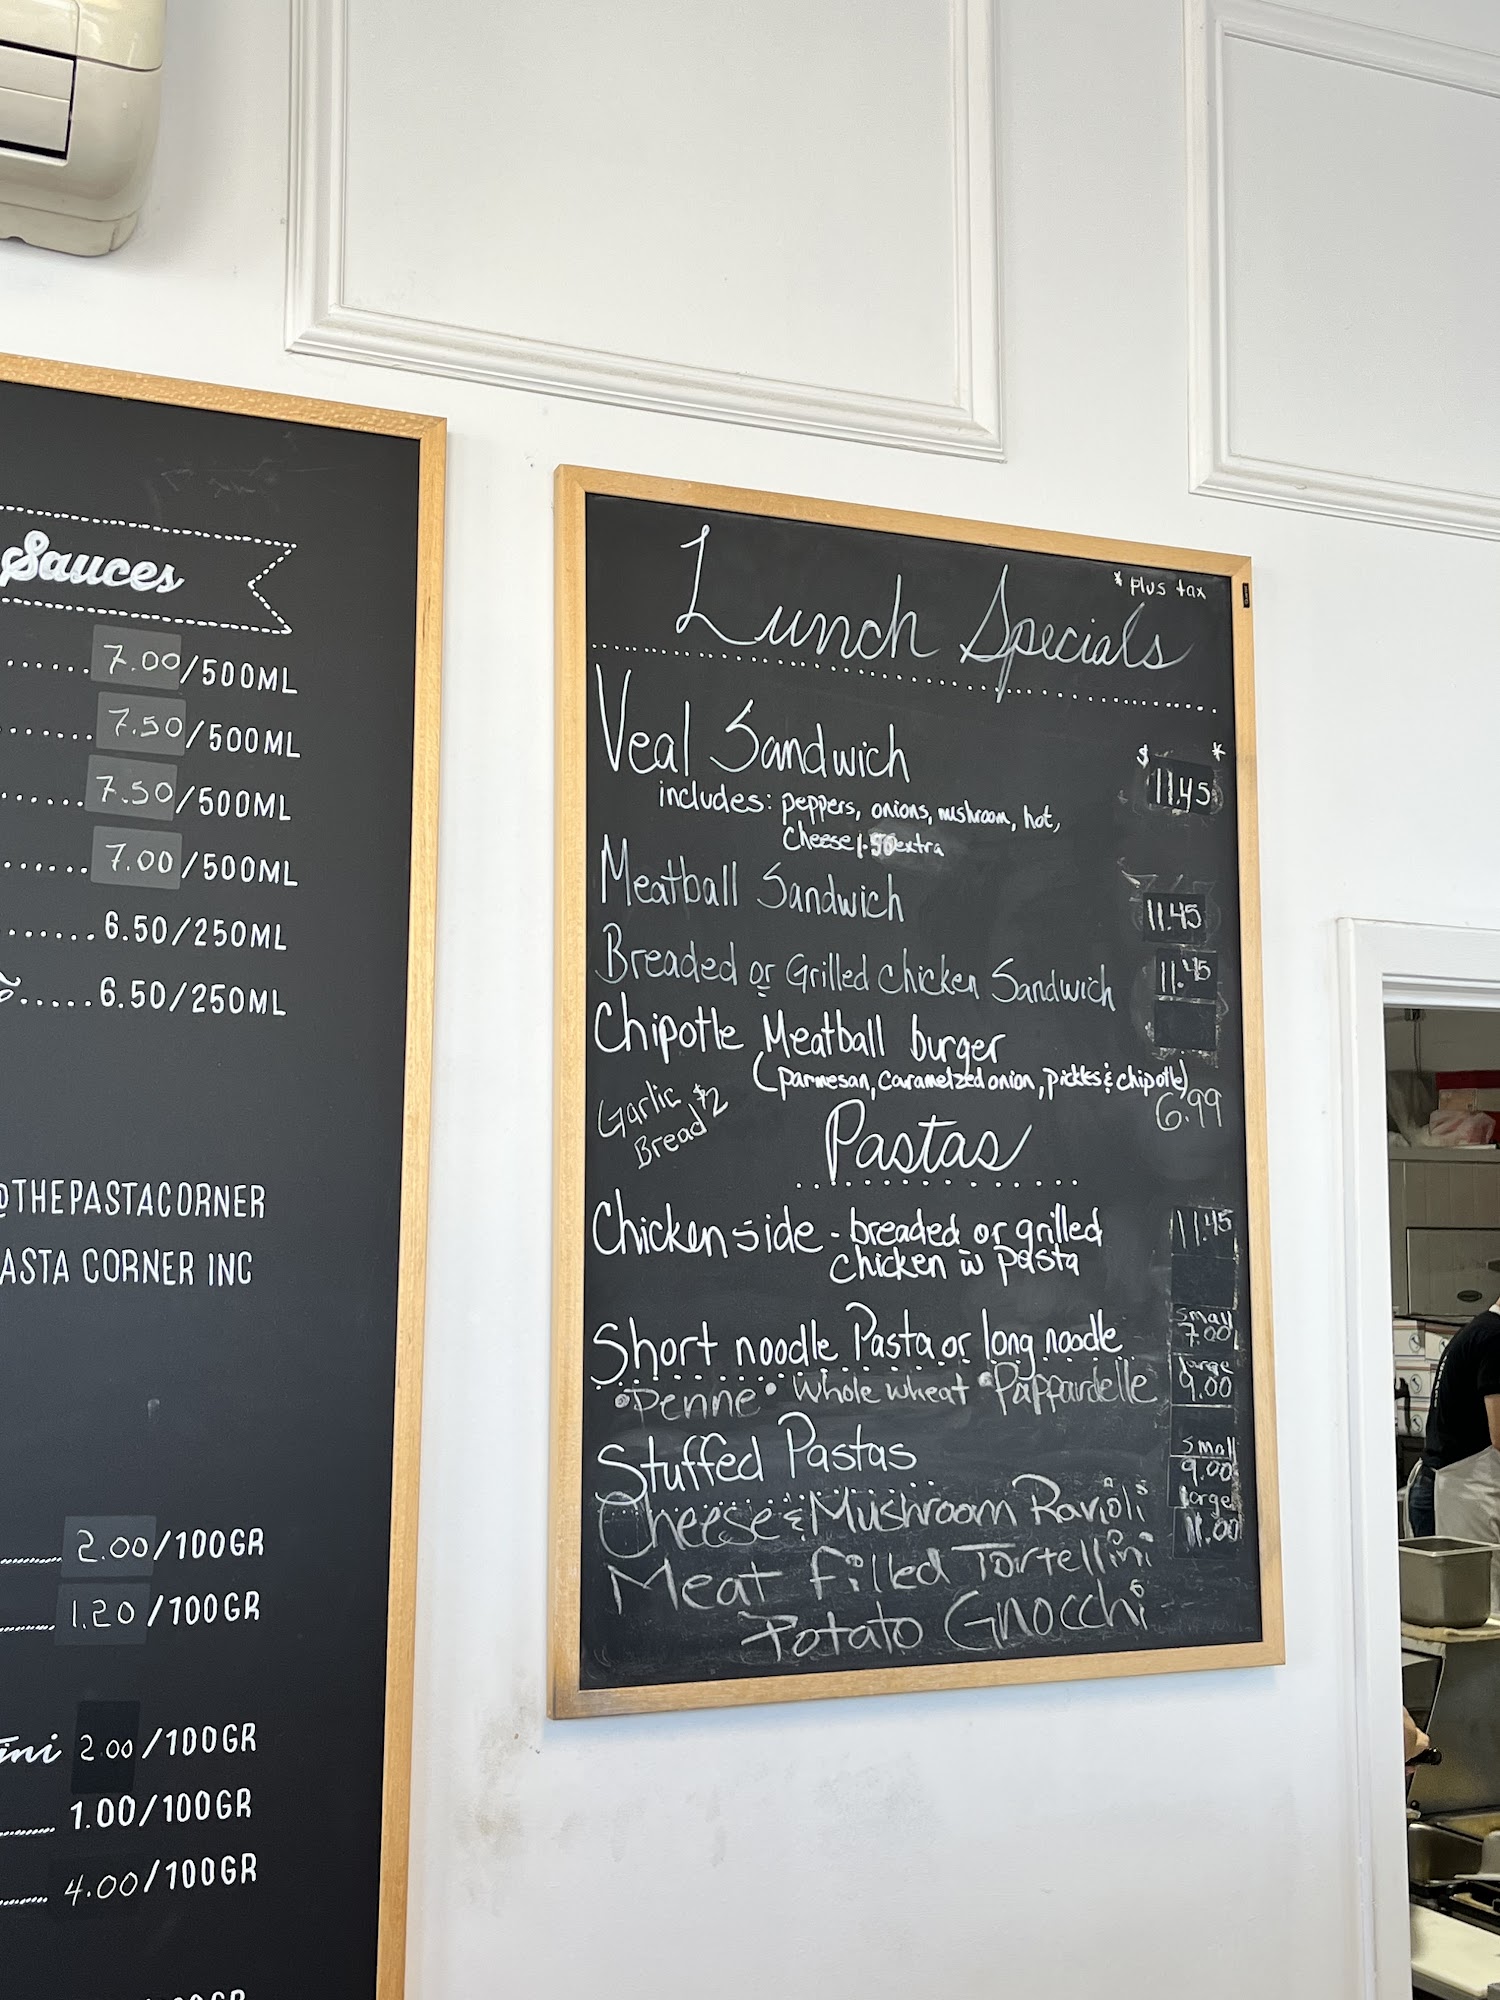 Sauces
7.00/500ML
7.50/500ML
7.50/500ML
7.00/500ML
6.50/250ML
6.50/250ML
@THEPASTACORNER
ASTA CORNER INC
2.00/100GR
1.20/100GR
ini 2.00/100GR
1.00/100GR
4.00/100GR
* plus tax
Lunch Specials
Veal Sandwich $ 11.45 *
includes: peppers, onions, mushroom, hot,
Cheese 1.50 extra
Meatball Sandwich 11.45
Breaded or Grilled Chicken Sandwich 11.45
Chipotle Meatball burger
(parmesan, caramelzed onion, pickles & chipotle)
6.99
Garlic $2
Bread
Pastas
Chicken side - breaded or grilled 11.45
chicken w pasta
Short noodle Pasta or long noodle small 7.00
• Penne • Whole wheat • Pappardelle large 9.00
Stuffed Pastas small 9.00
Cheese & Mushroom Ravioli large 11.00
Meat filled Tortellini
Potato Gnocchi